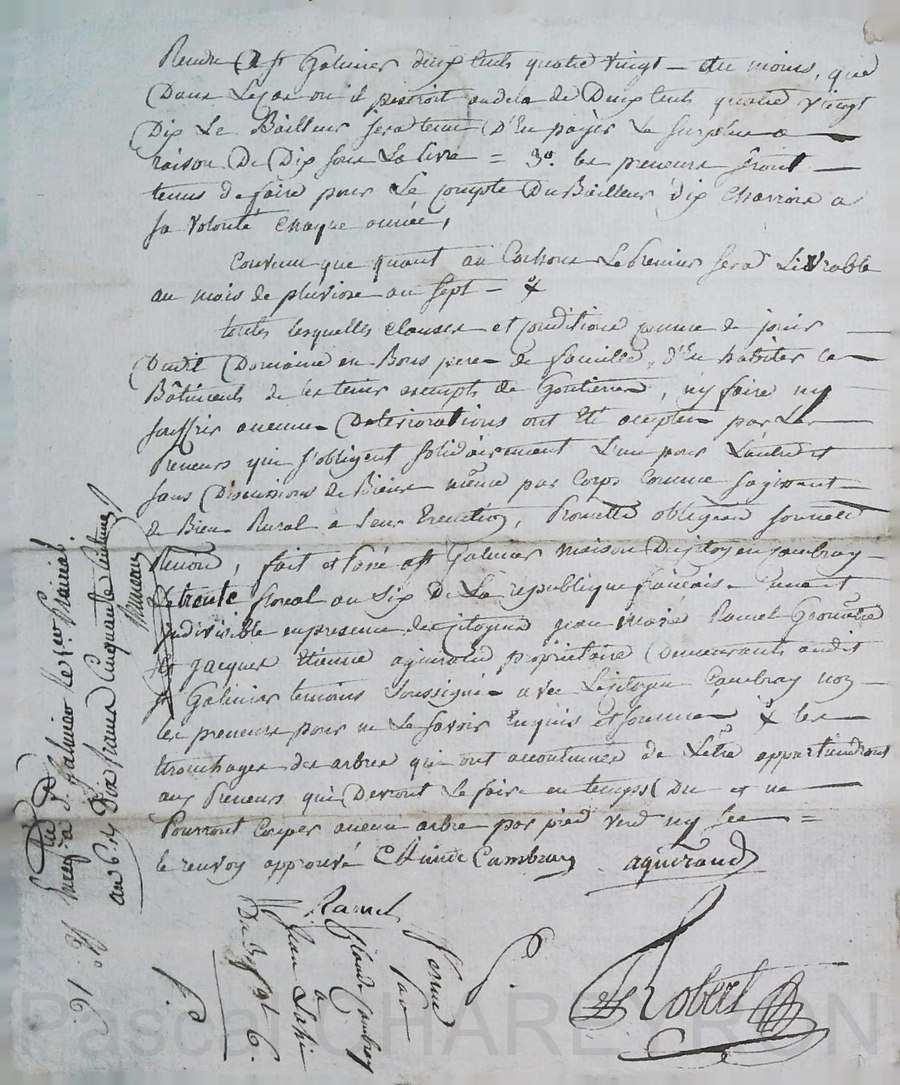 Rendu a St Galmier dix huit quatre vingt - du moins, que
Dans Le cas ou il peseroit audela de Dix huit quatre vingt
Dix Le Bailleur sera tenu D'En payer Le surplus a
raison De Dix sous La livre = 3o. les preneurs seront
tenus de faire pour Le Compte Du Bailleur dix charrois a
sa volonté chaque année,
Convenu que quant au Cochons Le premier sera Livrable
au mois de pluviose an sept -
toutes lesquelles clauses et conditions comme de jouir
Dudit Domaine en Bons pere de famille, d'En habiter les
Bâtiments de les tenir exempts de Goutieres, ny faire ny
souffrir aucunes Deteriorations ont Eté acceptes par Les
Preneurs qui s'obligent solidairement L'un pour L'autre et
sans Discussions de Biens même par Corps Comme s'agissant
de Bien Rural a Leur Execution, Promettes obligeons soumet
Renon, fait et passé a St Galmier maison Du Citoyen Cambray
trente floreal an six de La republique francaise une et
indivisible en presence des Citoyens jean marie Ramel Géomètre
et jacques Etienne aguiraud propriétaire Demeurants audit
St Galmier temoins soussignés avec Le Citoyen Cambray non
les preneurs pour ne Le savoir Enquis et sommes les
tronchages des arbres qui ont accoutumés de Letre appartiendront
aux Preneurs qui Devront Le faire en temps Du et ne
Pourront Couper aucun arbre par pied verd ny sec =
le renvoy approuvé Claude Cambray aguiraud
Ramel
Robert
ferme
par
Claude Cambray
a
jean
Du 30 flo. 6.
Enregé a St Galmier le 1er Prairial
an 6. Dix francs Cinquante Centimes